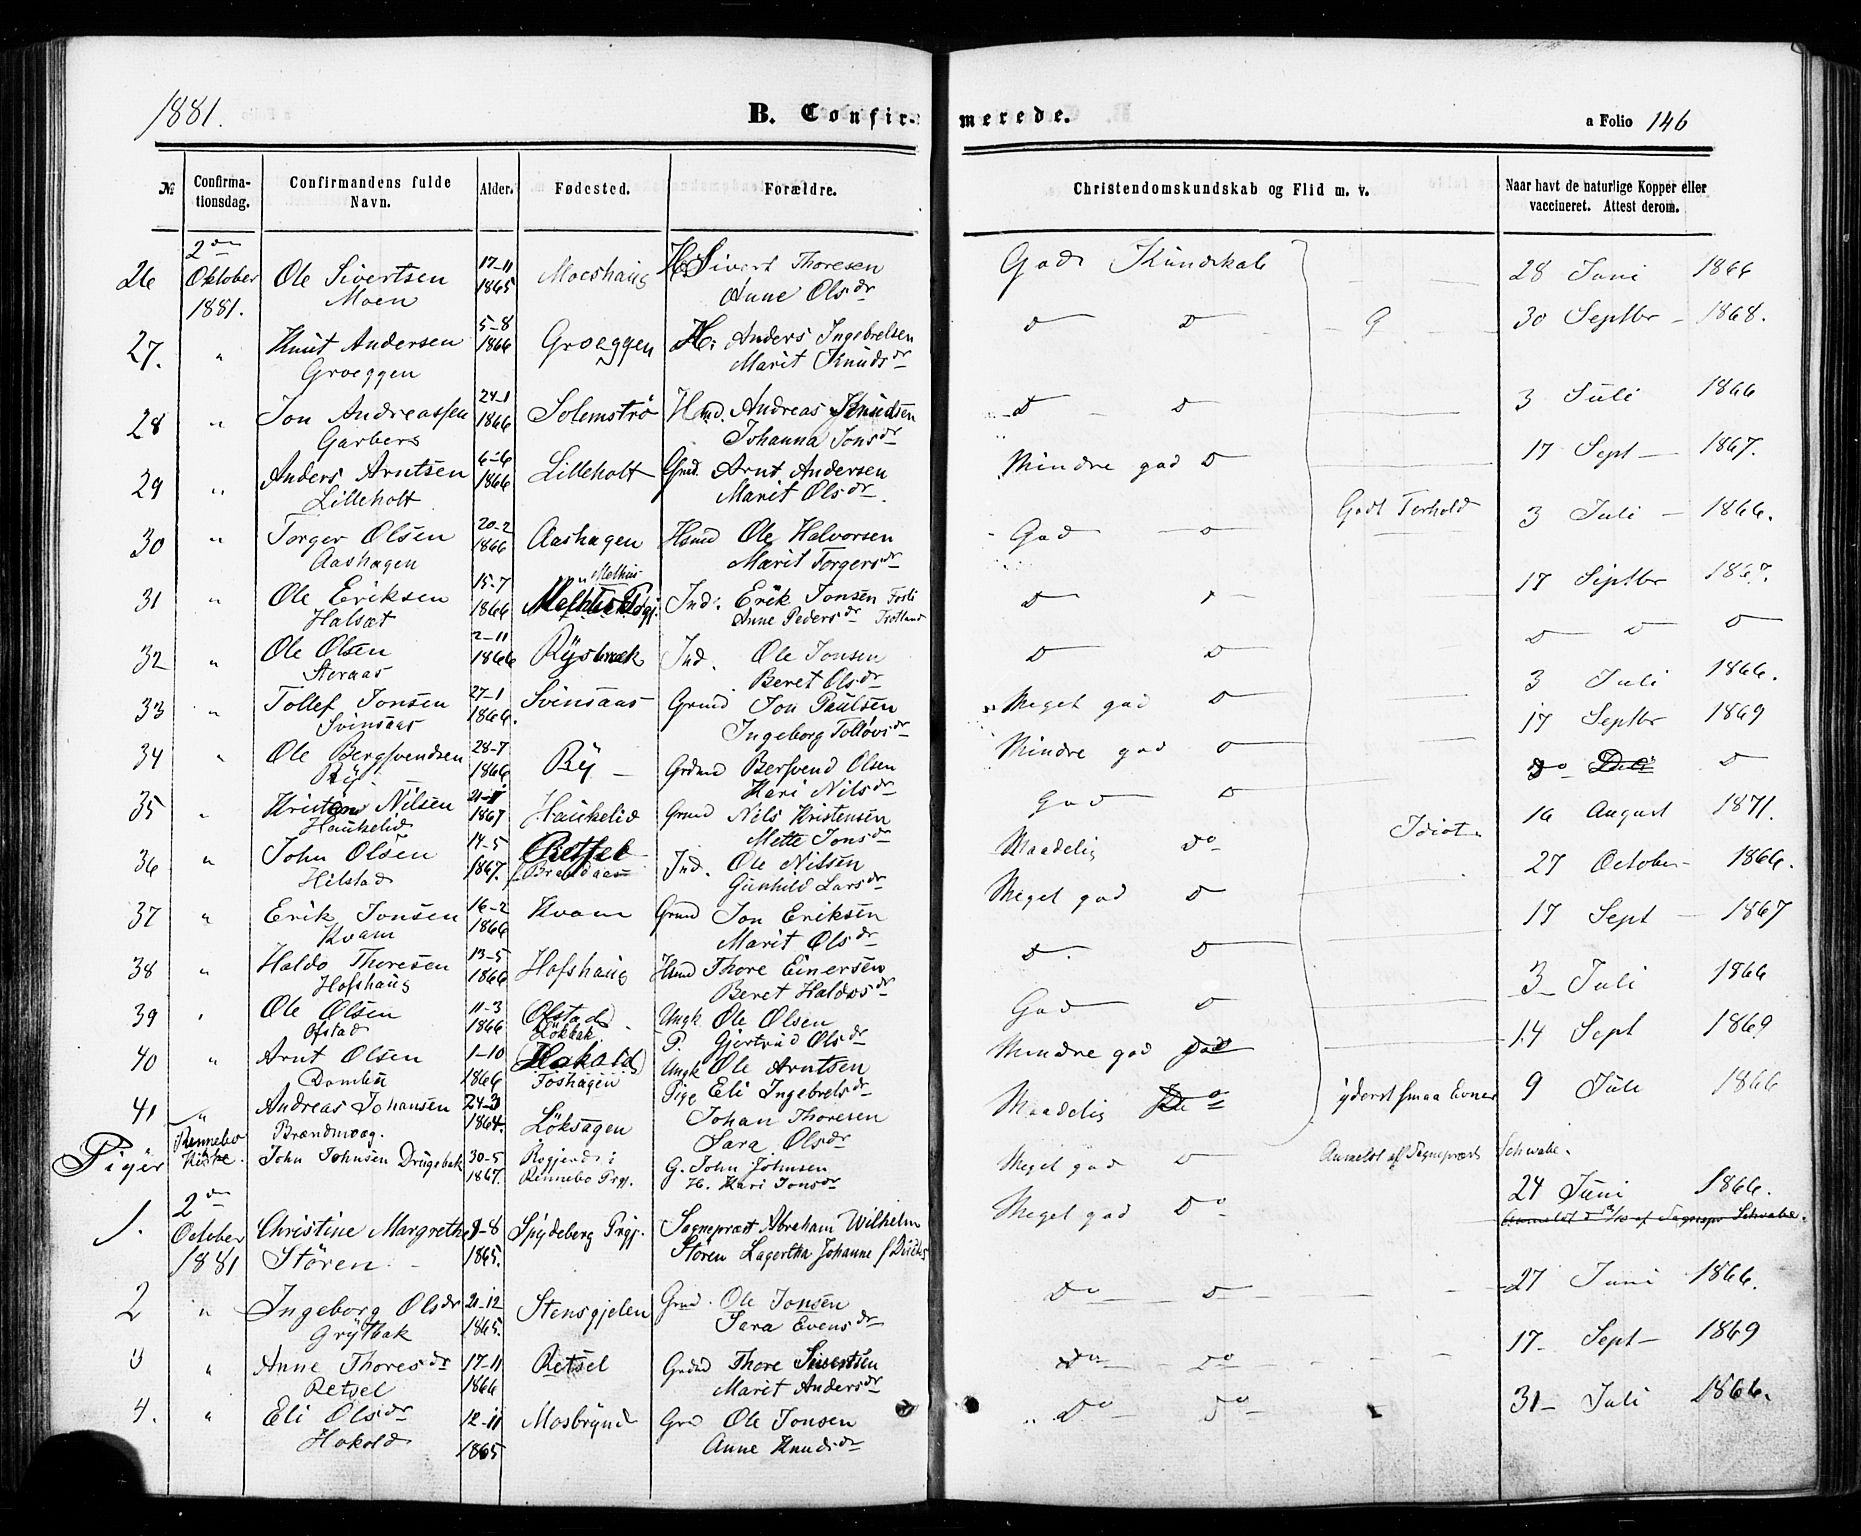 1881.
B. Confirmerede.
a Folio 146
№ Confirmationsdag. Confirmandens fulde Navn. Alder. Fødested. Forældre. Christendomskundskab og Flid m. v. Naar havt de naturlige Kopper eller vaccineret. Attest derom.
26 2den Oktober 1881. Ole Sivertsen Moen 17-11 1865 Moeshaug Sivert Thoresen Anne Olsdr God Kundskab 28 Juni 1866
27. " Knut Andersen Groeggen 5-8 1866 Groeggen H. Anders Ingebrelsen Marit Knudsdr D D G 30 Septbr 1868.
28 " Jon Andreassen Garberg 24-1 1866 Solemstrø Hmd. Andreas Johanna Jonsdr D D 3 Juli 1866
29 " Anders Arntsen Lilleholt 6-6 1866 Lilleholt Gmd. Arnt Andersen Marit Olsdr. Mindre god D 17 Sept 1867.
30 " Torger Olsen Aashagen 20-2 1866 Aashagen Hsmd Ole Halvorsen Marit Torgersdr God D Godt Forhold 3 Juli 1866.
31 " Ole Eriksen Halsæt 15-7 1866 Melhus Ind. Erik Jonsen Anne Pedersdr D 17 Septbr 1867.
32 " Ole Olsen Storaas 2-11 1866 Rysbræk Ind. Ole Jonsen Beret Olsdr D D D D D
33 " Tollef Jonsen Svinsaas 27-1 1866. Svinsaas Grund Jon Paulsen Ingeborg Tollovsdr Meget god D 3 Juli 1866.
34 " Ole Bergsvendsen Ry 28-7 1866 Ry Grdmd Bersvend Olsen Kari Nilsdr Mindre god D 17 Septbr 1869
35 " Nilsen Haukelid 1867 Haukelid Grmd Nils Kristensen Mette Jonsdr God D Do D
36 " John Olsen Hilstad 14-5 1867. Retsel Ind. Ole Nilsen Gunhild Larsdr Maadelig Do Idiot 16 August 1871.
37 " Erik Jonsen Kvam 16-2 1866 Kvam Grmd Jon Eriksen Marit Olsdr Meget god D 27 October 1866.
38 " Haldo Thoresen Hofshaug 13-5 1866 Hofshaug Hsmd Thore Einersen Beret Haldosdr D. D 17 Sept 1867
39 " Ole Olsen Ofstad 11-3 1866 Ofstad Løkbak Ungk Ole Olsen P. Gjertrud Olsdr God D 3 Juli 1866
40 " Arnt Olsen 1-10 1866 Hokold Foshagen Ungk Ole Arntsen Pige Eli Ingebrelsdr Mindre god 14 Sept 1869
41 " Andreas Johansen Brændmoeg. 24-3 1864. Løksagen Johan Thoresen Sara Olsdr Maadelig Do yderst smaa Evner 9 Juli 1866
Rennebo Kirke. John Johnsen Drugsbak 30-5 1867. Rennebo Prgj. G. John Johnsen H. Kari Jonsdr Meget god D Anmeldt af Sognepræst Schwabe.
Piger
1. 2den October 1881 Christine Margrethe Støren 9-8 1865. Spydeberg Prgj. Sognepræst Abraham Wilhelm Støren Lagertha Johanne f. Diriks Meget god Do 24 Juni 1866.
Anmeldt af Sognepr Schwabe.
2 " Ingeborg Olsdr Grytbak 21-12 1865. Stensgjelen Grmd. Ole Jonsen Sara Evensdr Do D 27 Juni 1866.
3 " Anne Thoresdr Retsel 17-11 1866 Retsel Grdmd Thore Sivertsen Marit Andersdr Do Do 17 Sept 1869
4. " Eli Olsdr Hokold 12-11 1865 Mosbrynd Grd Ole Jonsen Anne Knudsdr Do Do 31 Juli 1866.